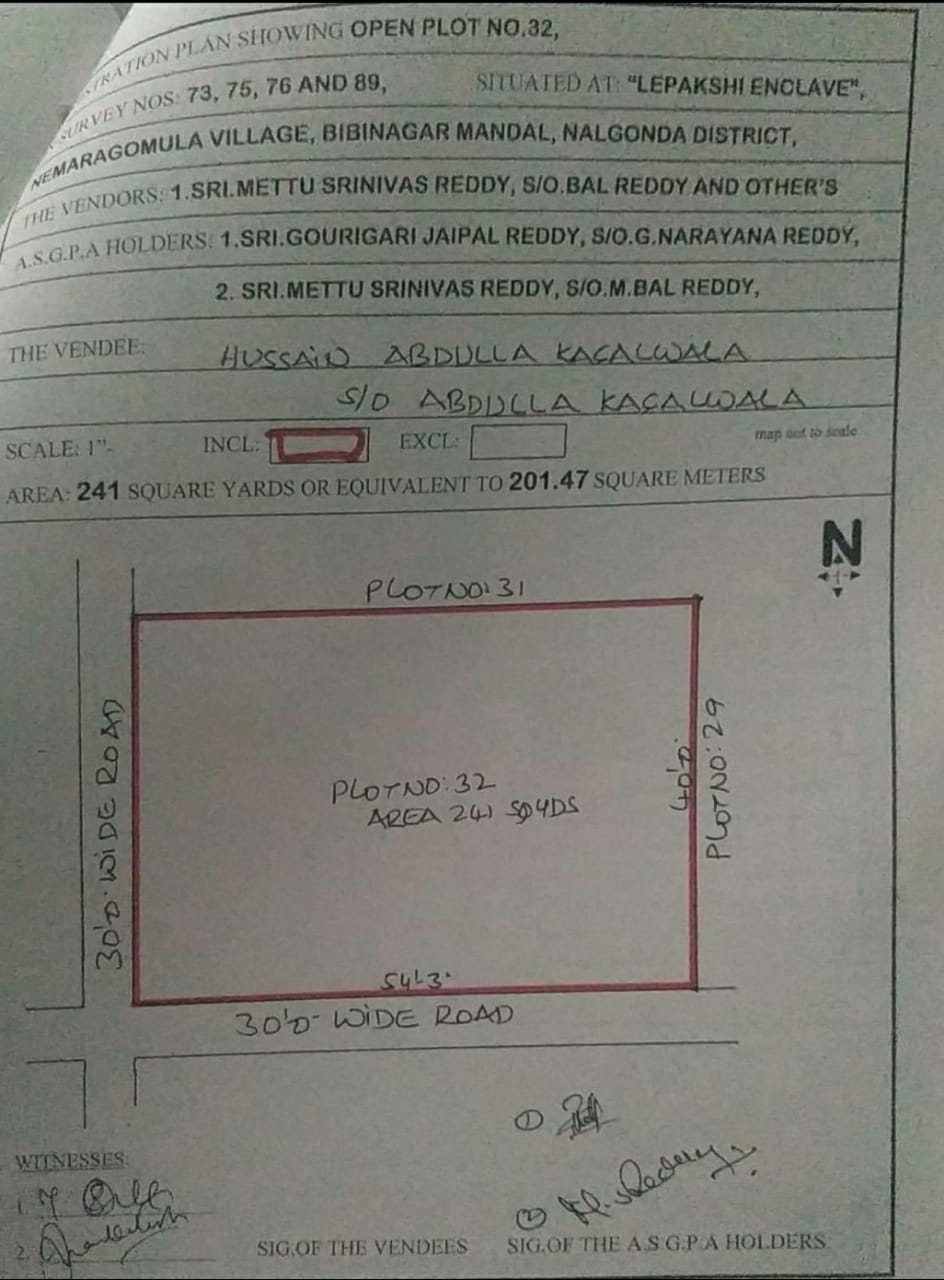 TRATION PLAN SHOWING OPEN PLOT NO.32,
SURVEY NOS: 73, 75, 76 AND 89, SITUATED AT: "LEPAKSHI ENCLAVE",
NEMARAGOMULA VILLAGE, BIBINAGAR MANDAL, NALGONDA DISTRICT,
THE VENDORS: 1.SRI.METTU SRINIVAS REDDY, S/O.BAL REDDY AND OTHER'S
A.S.G.P.A HOLDERS: 1.SRI.GOURIGARI JAIPAL REDDY, S/O.G.NARAYANA REDDY,
2. SRI.METTU SRINIVAS REDDY, S/O.M.BAL REDDY,
THE VENDEE: HUSSAIN ABDULLA KAGALWALA
S/O ABDULLA KAGALWALA
SCALE: 1"- INCL: EXCL: map not to scale
AREA: 241 SQUARE YARDS OR EQUIVALENT TO 201.47 SQUARE METERS
N
PLOT NO: 31
30'0" WIDE ROAD
PLOT NO: 32
AREA 241 SQYDS
40'0"
PLOT NO: 29
54'-3"
30'0" WIDE ROAD
1
WITNESSES:
1.
2 M. S Reddy
2.
SIG.OF THE VENDEES SIG.OF THE A.S.G.P.A HOLDERS